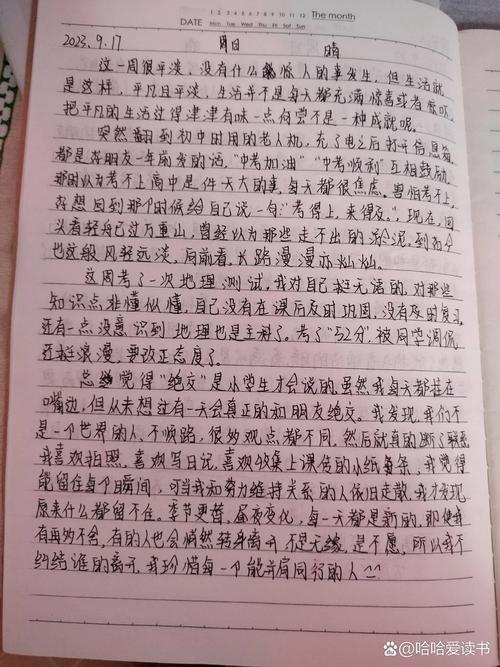 1 2 3 4 5 6 7 8 9 10 11 12 The month
DATE Mon Tue Wed Thu Fri Sat Sun
2023.9.17 周日 晴
这一周很平淡,没有什么惊人的事发生,但生活就
是这样,平凡且平淡,生活并不是每天都充满惊喜或者
把平凡的生活过得津津有味一点何尝不是一种成就呢。
突然翻到初中时用的老人机,充了电之后打开信息箱
都是并朋友一年前发的话,“中考加油”“中考顺利”互相鼓励
那时以为考不上高中是件天大的事,每天都很焦虑,害怕考不上,
好想回到那个时候给自己说一句:“考得上,来得及。”,现在,回
头看轻舟已过万重山,曾经以为那些走不出的淤泥,到如今
也这般风轻远淡,向前看,长路漫漫亦灿灿。
这周考了一次地理测试,我对自己挺无语的,对那些
知识点非懂似懂,自己没有在课后及时巩固,没有及时复习,
还有一点没意识到地理也是主科了。考了“52分”,被同学调侃
还挺浪漫,要改正态度了。
总觉得“绝交”是小学生才会说的,虽然我每天都挂在
嘴边,但从未想过有一天会真正的和朋友绝交。我发现,我们不
是一个世界的人,不顺路,很多观点都不同,然后就真的断了联系
我喜欢拍照,喜欢写日记,喜欢收集上课传的小纸条,我觉得
能留住每个瞬间,可当我和努力维持关系的人依旧走散,我才发现
原来什么都留不住。季节更替,昼夜变化,每一天都是新的,即使我
有再多不舍,有的人也会悄然转身离开,不是无缘,是不愿,所以我不
纠结谁的离开,我珍惜每一个能并肩同行的人^^
@哈哈爱读书